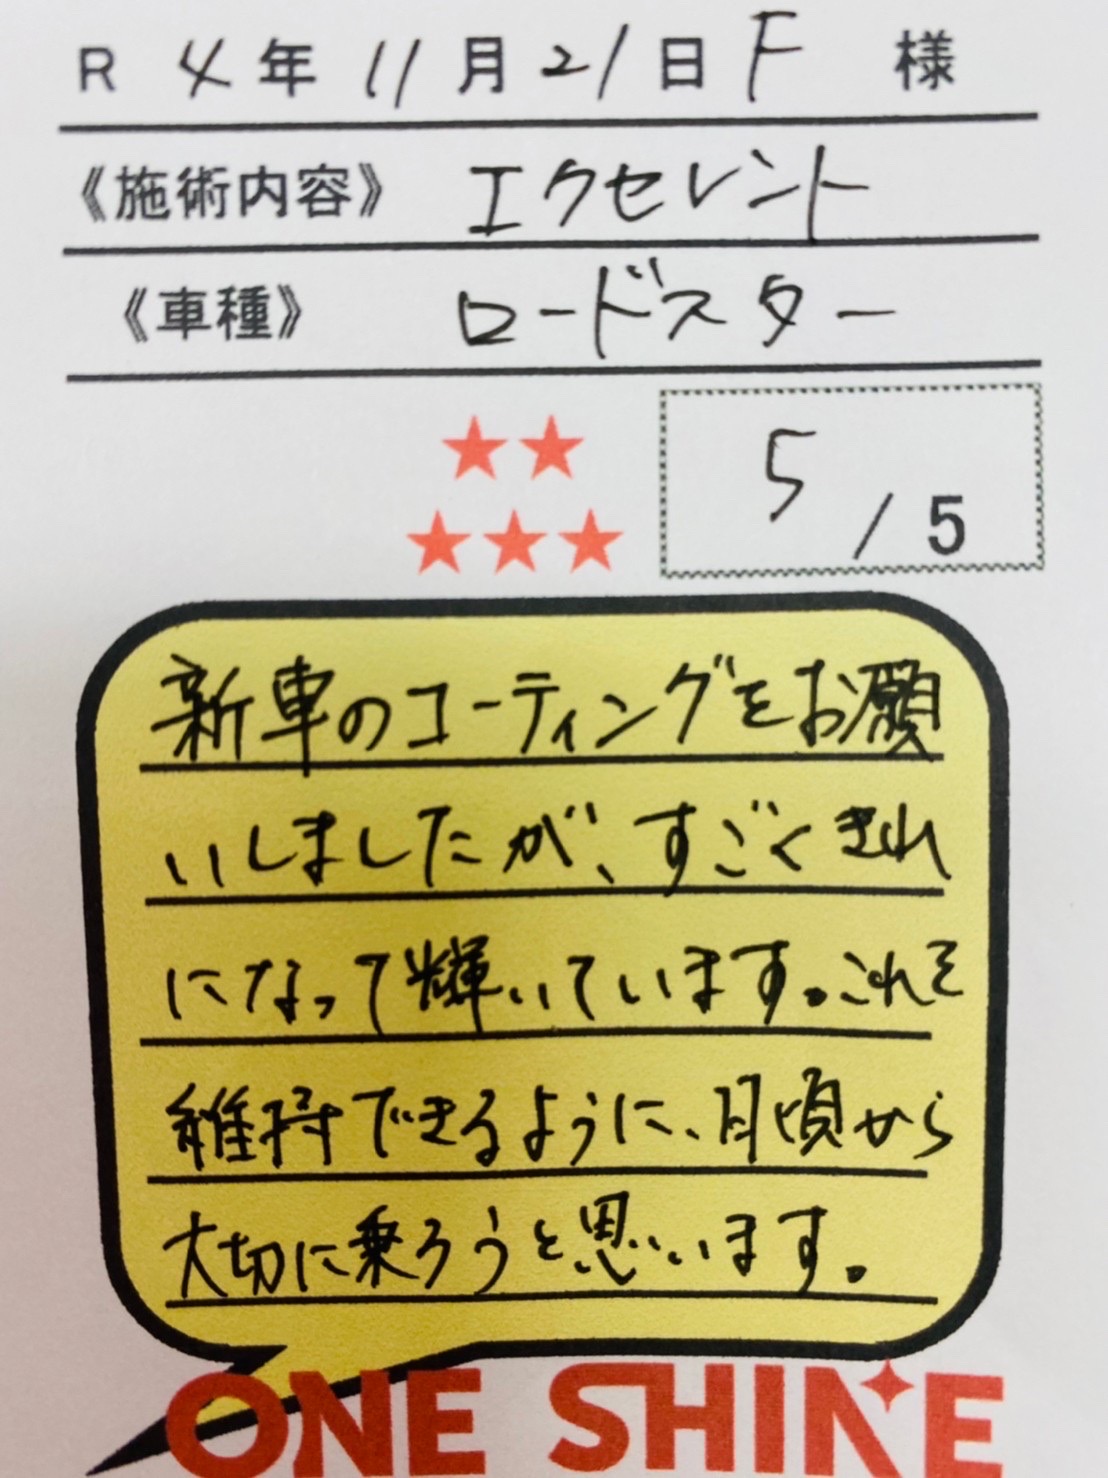 R 4年 11月 21日 F 様
《施術内容》 エクセレント
《車種》 ロードスター
5 / 5
新車のコーティングをお願
いしましたが、すごくきれ
になって輝いています。これを
維持できるように、日頃から
大切に乗ろうと思います。
ONE SHINE